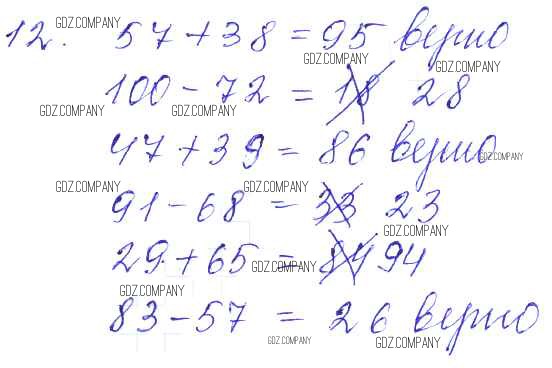 12. 57 + 38 = 95 верно
100 - 72 = 18 28
47 + 39 = 86 верно
91 - 68 = 33 23
29 + 65 = 84 94
83 - 57 = 26 верно
GDZ.COMPANY
GDZ.COMPANY
GDZ.COMPANY
GDZ.COMPANY
GDZ.COMPANY
GDZ.COMPANY
GDZ.COMPANY
GDZ.COMPANY
GDZ.COMPANY
GDZ.COMPANY
GDZ.COMPANY
GDZ.COMPANY
GDZ.COMPANY